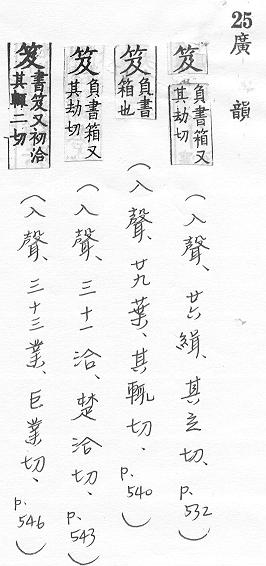 25 廣韻
笈 負書箱又其劫切 (入聲、廿六緝、其立切、p.532)
笈 負書箱也 (入聲、廿九葉、其輒切、p.540)
笈 負書箱又其劫切 (入聲、三十一洽、楚洽切、p.543)
笈 書笈又初洽其輒二切 (入聲、三十三業、巨業切、p.546)